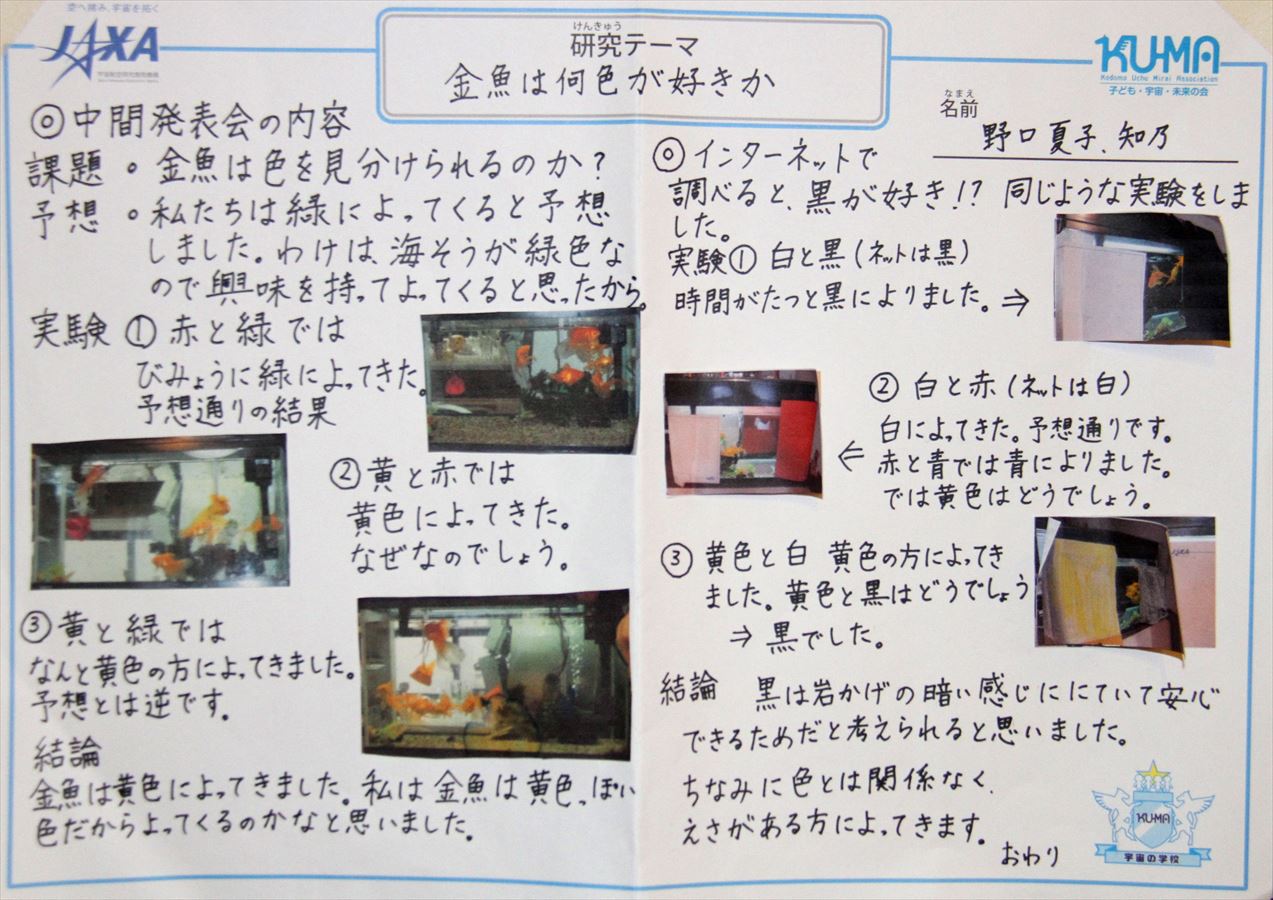 空へ挑み、宇宙を拓く
JAXA
宇宙航空研究開発機構
けんきゅう
研究テーマ
金魚は何色が好きか
KU-MA
Kodomo Uchu Mirai Association
子ども・宇宙・未来の会
なまえ
名前
野口夏子、知乃
◎中間発表会の内容
課題 。金魚は色を見分けられるのか？
予想 。私たちは緑によってくると予想
しました。わけは、海そうが緑色な
ので興味を持ってよってくると思ったから。
実験 ① 赤と緑では
びみょうに緑によってきた。
予想通りの結果
② 黄と赤では
黄色によってきた。
なぜなのでしょう。
③ 黄と緑では
なんと黄色の方によってきました。
予想とは逆です。
結論
金魚は黄色によってきました。私は金魚は黄色っぽい
色だからよってくるのかなと思いました。
◎インターネットで
調べると、黒が好き!? 同じような実験をしま
した。
実験① 白と黒(ネットは黒)
時間がたつと黒によりました。⇒
② 白と赤(ネットは白)
白によってきた。予想通りです。
← 赤と青では青によりました。
では黄色はどうでしょう。
③ 黄色と白 黄色の方によってき
ました。黄色と黒はどうでしょう
⇒ 黒でした。
結論 黒は岩かげの暗い感じににていて安心
できるためだと考えられると思いました。
ちなみに色とは関係なく、
えさがある方によってきます。
おわり
KU-MA
宇宙の学校